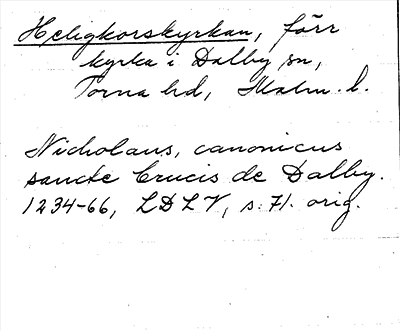 Heligkorskyrkan, förr
kyrka i Dalby sn,
Torna hd, Malm. l.
Nicholaus, canonicus
sancte Crucis de Dalby.
1234-66, LDLV, s. 71. orig.